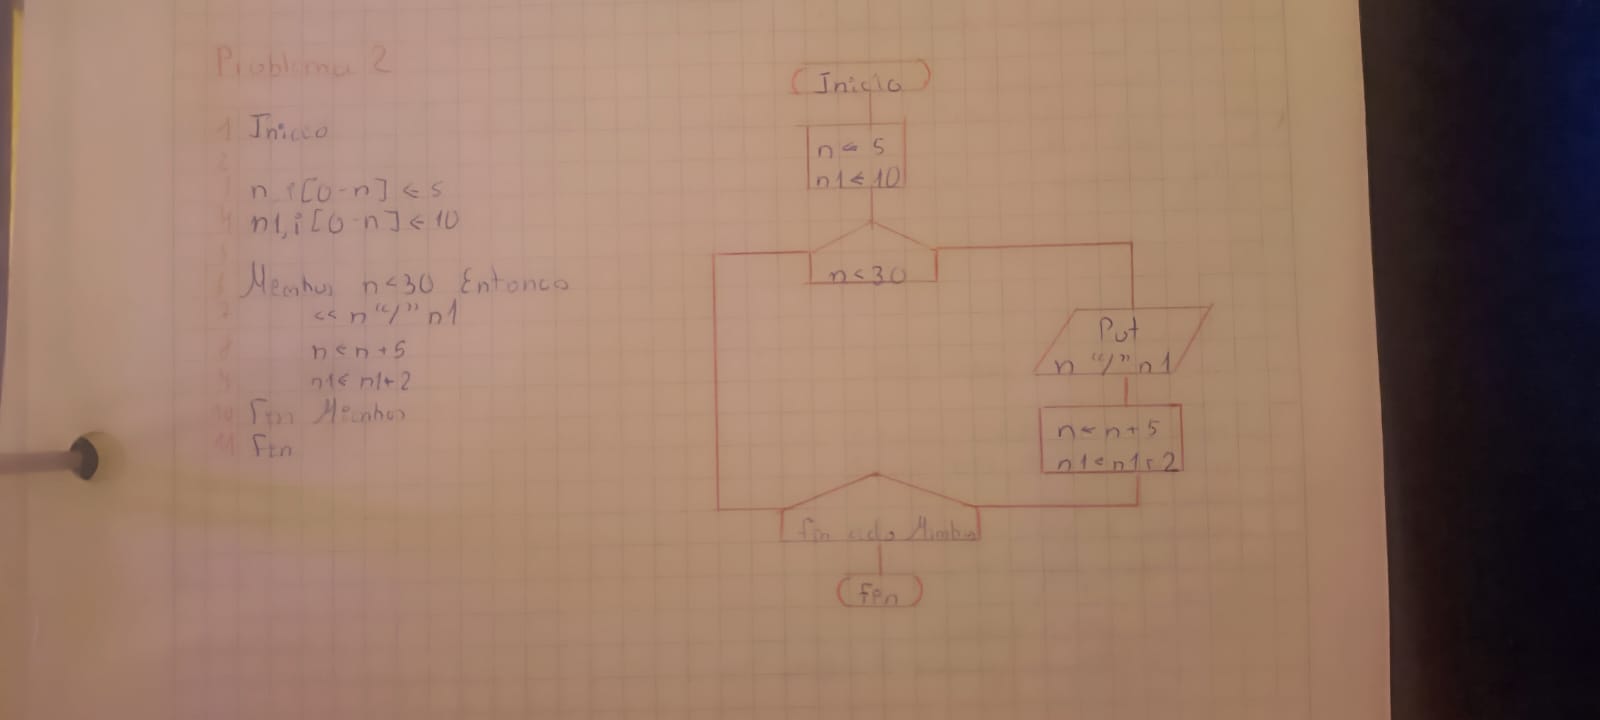 Problema 2
1 Inicio
2
3 n i[0-n] ← 5
4 n1,i[0-n] ← 10
5
6 Mientras n<30 Entonces
7 << n "/" n1
8 n ← n+5
9 n1 ← n1+2
10 Fin Mientras
11 Fin
Inicio
n ← 5
n1 ← 10
n<30
Put
n "/" n1
n ← n+5
n1 ← n1+2
fin ciclo Mientras
fin